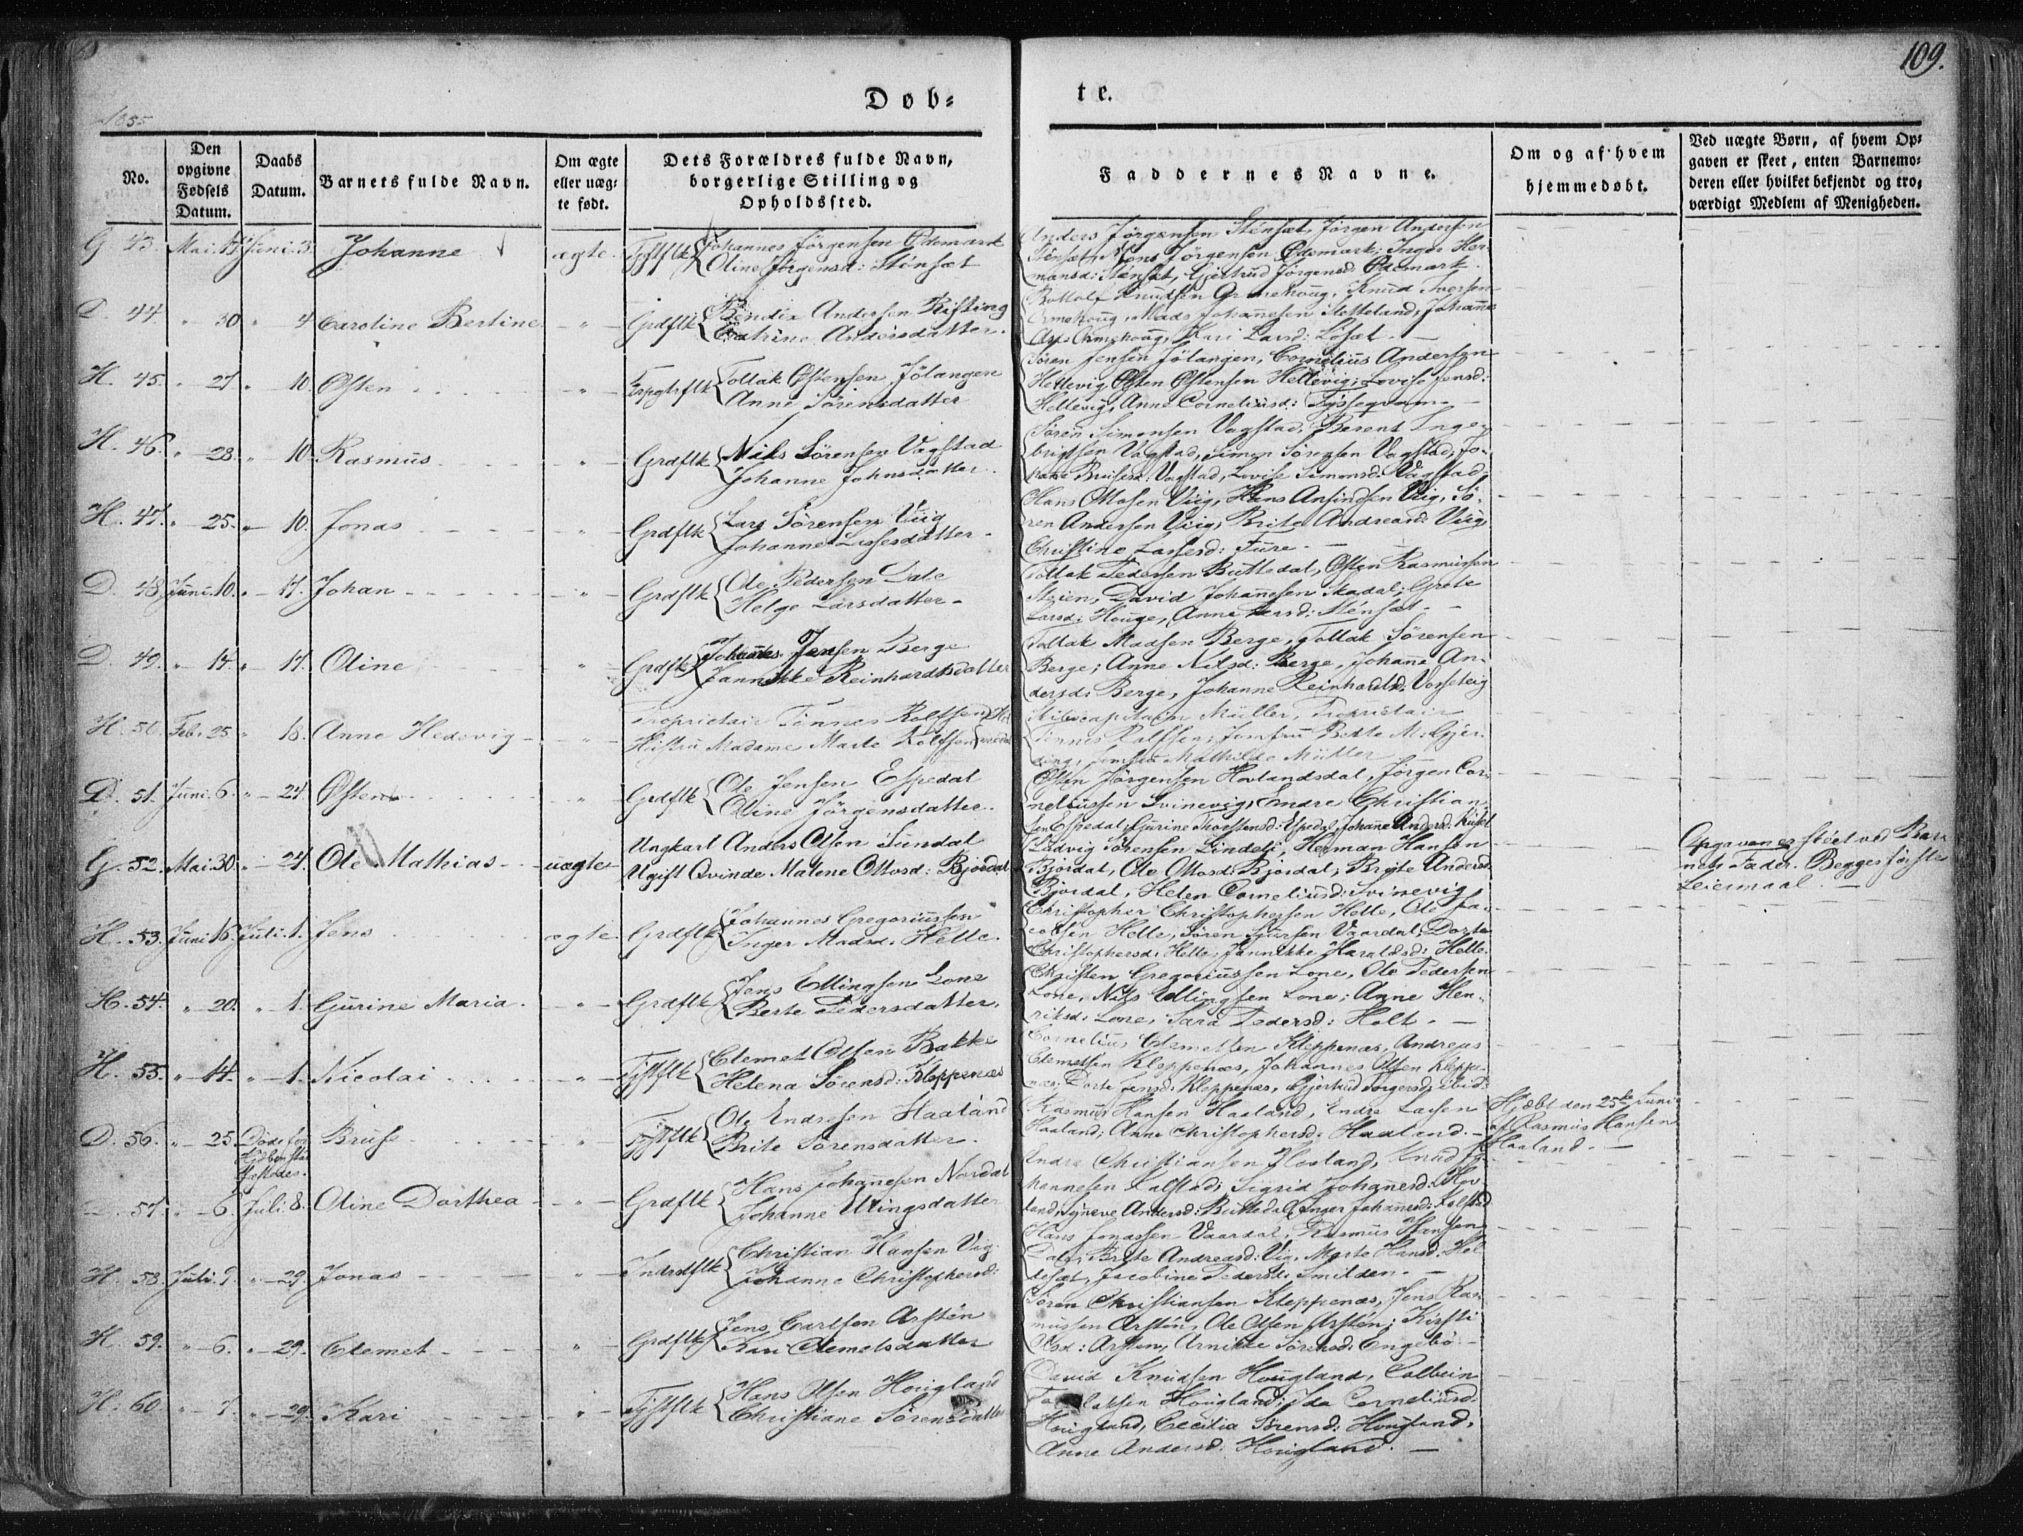 109.
Döb=
te.
1855
No.
Den opgivne Fødsels Datum.
Daabs Datum.
Barnets fulde Navn.
Om ægte eller uæg-te født.
Dets Forældres fulde Navn, borgerlige Stilling og Opholdssted.
Faddernes Navne.
Om og af hvem hjemmedøbt.
Ved uægte Børn, af hvem Op-gaven er skeet, enten Barnemo-deren eller hvilket bekjendt og tro-værdigt Medlem af Menigheden.
G 43. Mai. Juni. 3. Johanne ægte. Johannes Jörgensen Ödemark
Oline Jörgensd: Sténsæt
Anders Jörgensen Sténsæt, Jörgen Andersen
Sténsæt, Mons Jörgensen Ödemark; Inger Her-
mansd: Sténsæt, Gjertrud Jörgensd: Ödemark.
D. 44. " 30 " 4 Caroline Bertine " Grdflk Bendix Andersen Rifting
Catrine Andersdatter.
Knud Iversen
Mads Johannesen Stetteland, Johanne
Kari Larsd: Löset.
H. 45. " 27 " 10. Østen " Tollak Østensen Jölangen
Anne Sörensdatter
Sören Jensen Jölangen, Cornelius Andersen
Hellevig, Østen Østensen Hellevig; Lovise Jensd:
Hellevig, Anne Corneliusd:
H. 46. " 28. " 10. Rasmus " Grdflk Nils Sörensen Vagstad
Johanne Johnsdatter.
Sören Simonsen Vagstad, Berent Inge-
brigtsen Vagstad, Simon Sörensen Vagstad; Jo-
Vagstad, Lovise Simonsd: Vagstad
H. 47. " 25. " 10. Jonas " Grdflk Lars Sörensen Viig
Johanne Lassesdatter.
Hans Ottosen Viig, Hans Ansindsen Viig, Sö-
ren Andersen Viig, Brite Andreasd: Viig,
Christine Lassesd: Fure.
D. 48. Juni. 10. " 17. Johan " Grdflk Ole Pedersen Dale
Helge Larsdatter.
Tollak Pedersen Buttedal, Østen Rasmussen
Steien, David Johannesen Skadal; Grete
Larsd: Houge, Anne Larsd: Sténsæt.
D. 49. " 14. " 17. Oline " Grdflk Johannes Jensen Berge
Jannikke Reinhardtsdatter
Tollak Madsen Berge, Tollak Sörensen
Berge; Anne Nilsd: Berge, Johanne An-
dersd: Berge, Johanne Reinhardtsd: Vosseteig
H. 50. Feb. 25 " 18. Anne Hedevig " Proprietair Tönnes Rolfsen
Hustru Madame Marte Rolfsen
Müller, Proprietair
Tönnes Rolfsen; Jomfru Berte M. Gjer-
ding, Jomfru Mathilde Müller
D. 51. Juni. 6. " 24. Østen " Grdflk Ole Jensen Espedal
Oline Jörgensdatter.
Østen Jörgensen Hovlandsdal, Jörgen Cor-
neliussen Svinevig, Endre Christian-
sen Espedal; Gjurine Thorstensd: Espedal, Johanne Andersd:
G. 52. Mai. 30. " 24. Ole Mathias uægte Ungkarl Anders Olsen Sundal
Ugift Qvinde Malene Ottosd: Bjordal
Ludvig Sörensen Herman Hansen
Bjordal, Ole Ottosd: Bjordal; Brite Andersd:
Bjordal, Helen Corneliusd: Svinevig
Opgaven er skeet ved Bar-
nets Fader. Begges förste
Leiermaal.
H. 53. Juni 16. Juli. 1. Jens ægte. Grdflk Johannes Gregoriussen
Inger Madsd: Helle.
Christopher Christophersen Helle, Ole Ja-
cobsen Helle, Sören Vaardal; Dorte
Christophersd: Helle, Jannikke Haraldsd: Helle.
H. 54. " 20. " 1. Gurine Maria. " Grdflk Jens Ellingsen Lone
Berte Pedersdatter.
Christen Gregoriussen Lone, Ole Pedersen
Lone, Nils Ellingsen Lone; Anne Hen-
riksd: Lone, Sara Pedersd: Holt.
H. 55. " 14. " 1. Nicolai " Clemet Olsen Bakke
Helena Sörensd: Kleppenæs
Cornelius Clemetsen Kleppenæs, Andreas
Clemetsen Kleppenæs, Johannes Olsen Kleppe-
næs; Dorte Jensd: Kleppenæs, Gjertrud ibid:
D. 56. " 25. Døde för Bruse " Ole Endresen Haaland
Brite Sörensdatter.
Rasmus Hansen Haaland, Endre Larsen
Haaland; Anne Christophersd: Haaland.
Hjdbt den 25de Juni
af Rasmus Hansen
Haaland.
57. " 6. Juli. 8. Oline Dorthea " Grdflk Hans Johannesen Nordal
Johanne Ellingsdatter
Endre Christiansen Hovland, Knud Jo-
hannesen Lalstad; Sigrid Johannesd: Hov-
land, Andersd: Buttedal, Inger Johannesd:
H. 58. Juli. 9. " 29. Jonas " Indrstflk Christian Hansen Vag
Johanne Christophersd:
Hans Jonassen Vaardal, Rasmus Hansen
Dale; Brite Andreasd: Viig, Marte Hansd: Hel-
lesæt, Jacobine Pedersd: Smilden.
H. 59. " 6. " 29. Clemet " Grdflk Jens Carlsen Arstén
Kari Clemetsdatter
Sören Christiansen Kleppenæs, Jens Ras-
mussen Arstén, Ole Olsen Arstén; Kirsti
Olsd: Arstén, Arnikke Sörensd: Engebö
H. 60. " 7. " 29. Kari " Hans Olsen Hougland
Christiane Sörensdatter
David Knudsen Hougland, Colbein
Hougland; Ida Corneliusd:
Hougland, Cecilia Sörensd: Hougland,
Anne Andersd: Hougland.